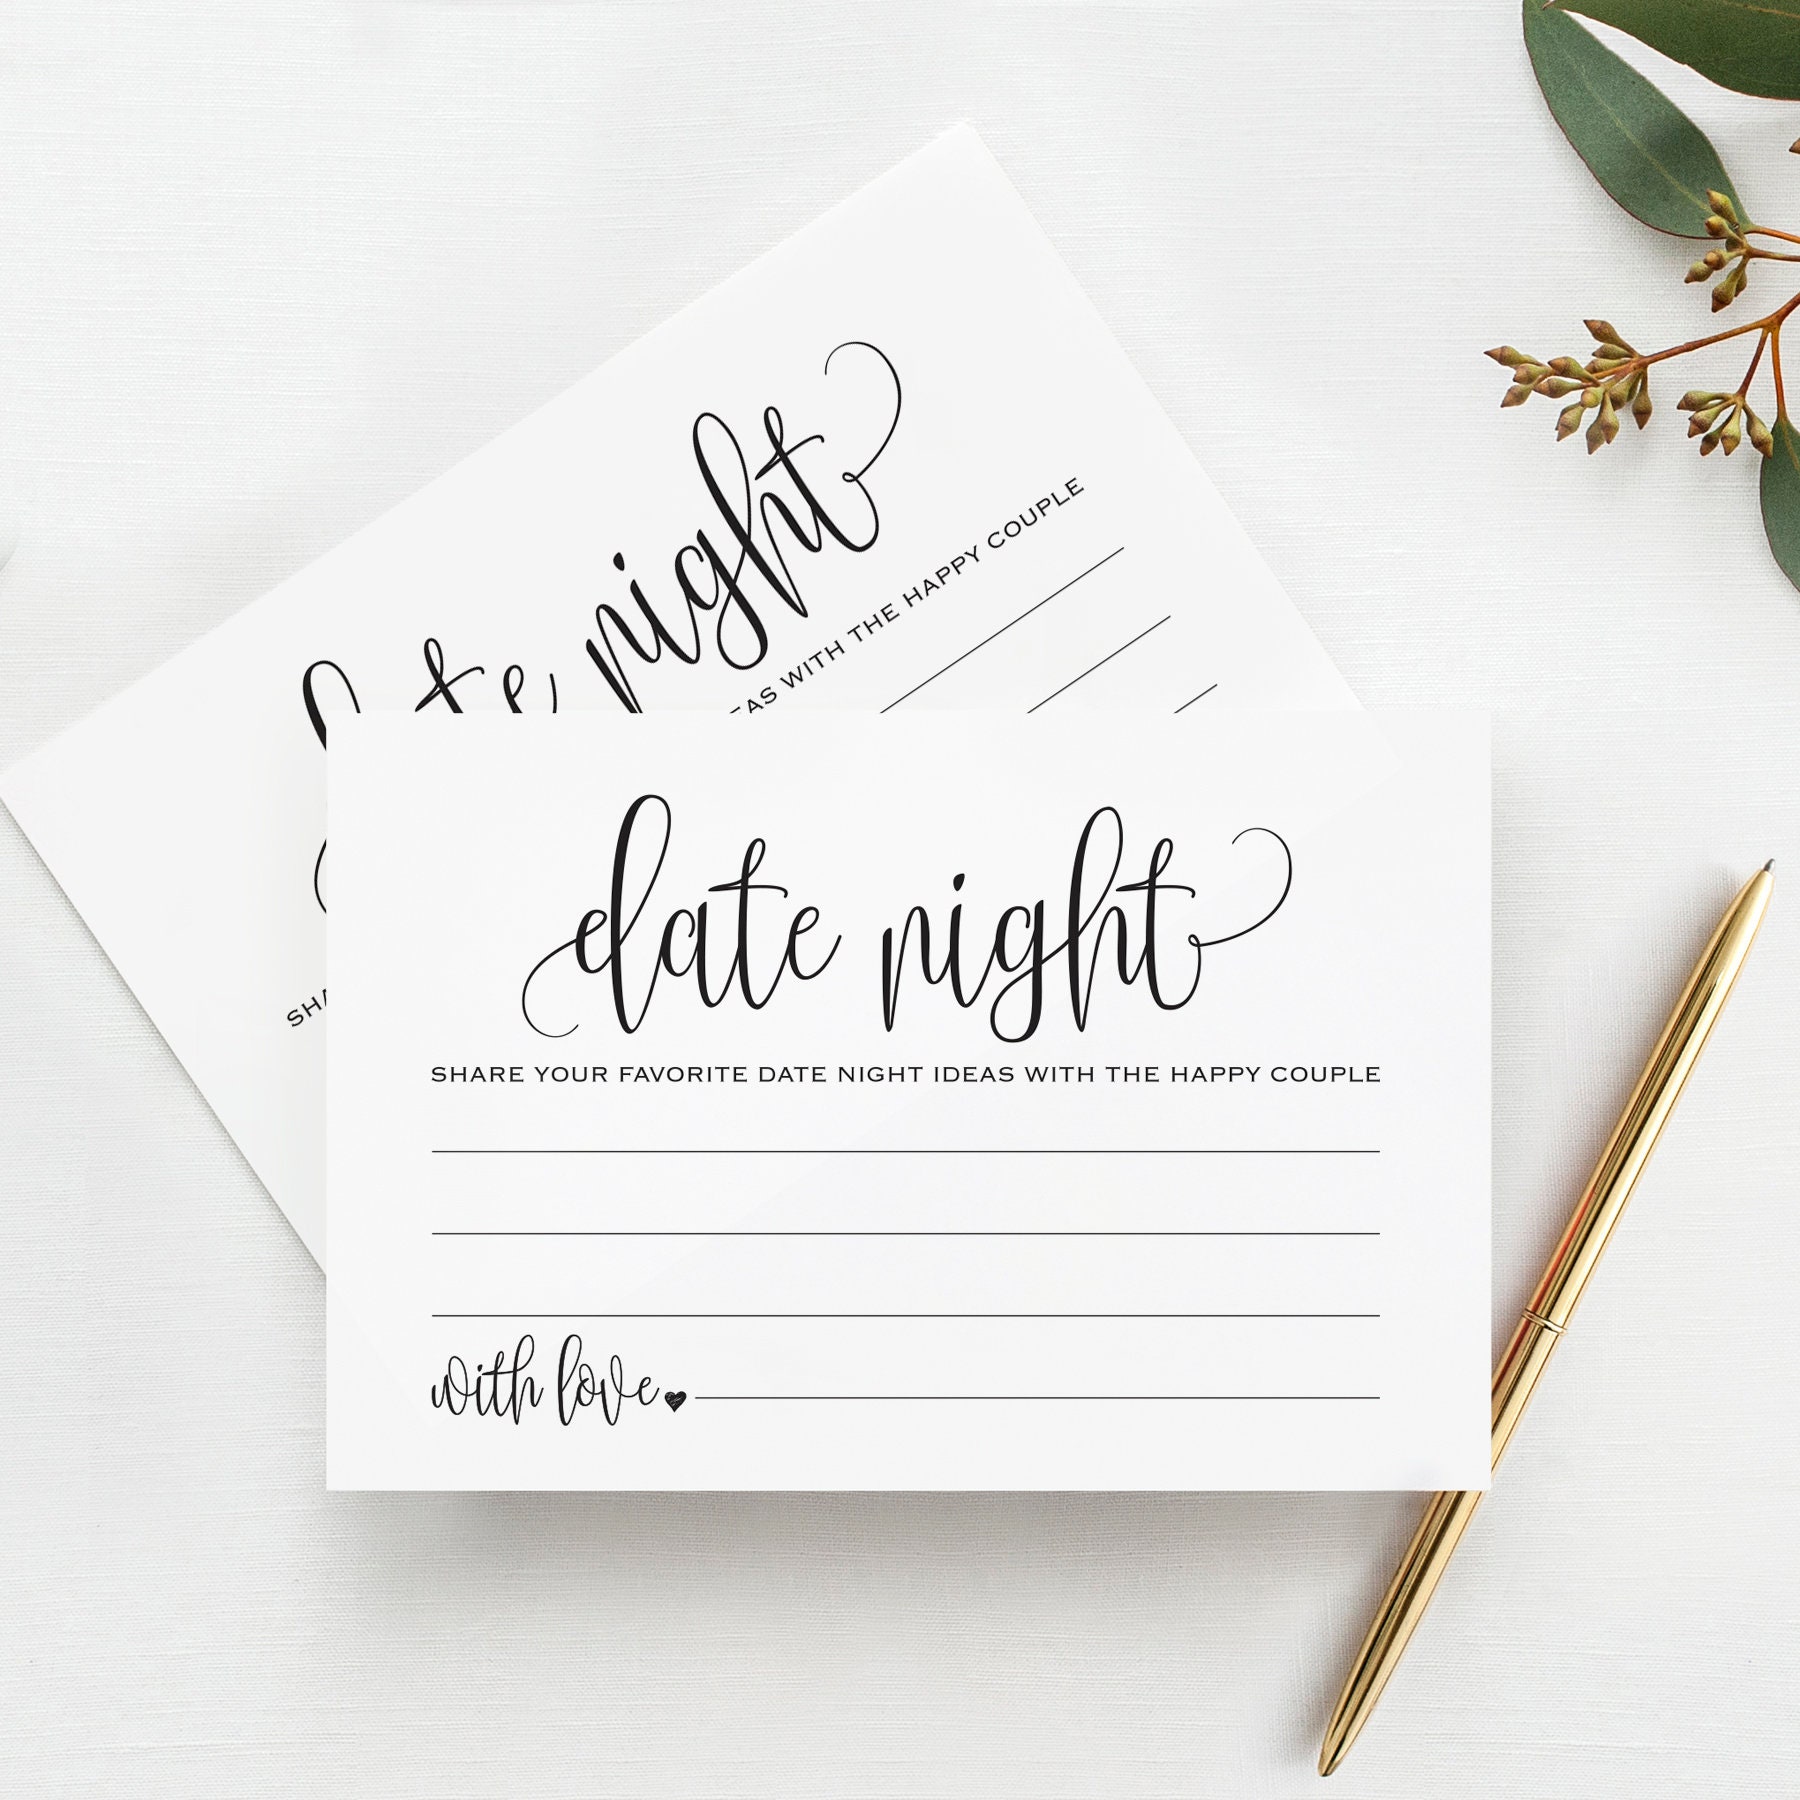 night
EAS WITH THE HAPPY COUPLE
SHA
date night
SHARE YOUR FAVORITE DATE NIGHT IDEAS WITH THE HAPPY COUPLE
with love